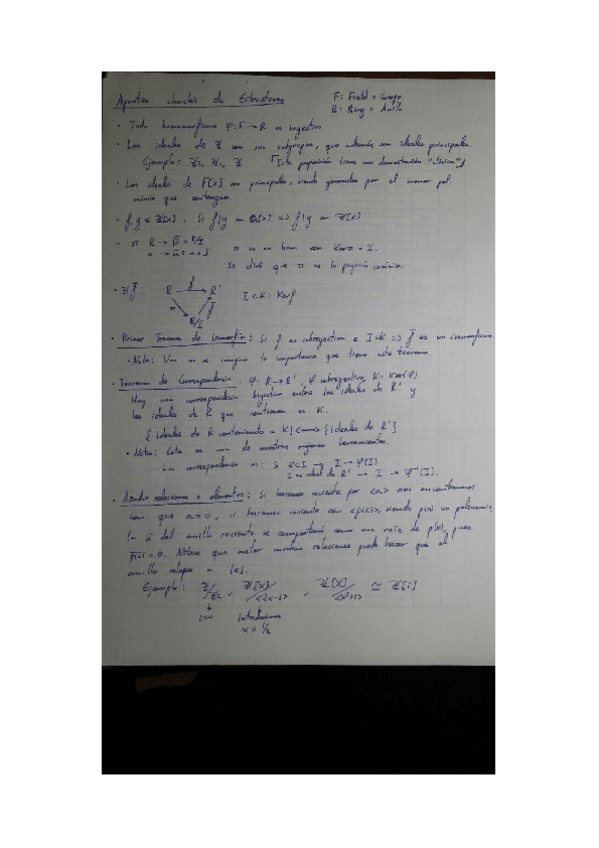 Apuntes chachis de Estructuras
F: Field = Cuerpo
R: Ring = Anillo
• Todo homomorfismo φ: F → R es inyectivo
• Los ideales de ℤ son sus subgrupos, que además son ideales principales.
Ejemplo: ℤ2, ℤ3, ℤ ⌈Esta proposición tiene una demostración "clásica"⌋
• Los ideales de F[x] son principales, siendo generados por el menor pol.
mónico que contengan.
• f, g ∈ ℤ[x]. Si f|g en ℚ[x] ⇒ f|g en ℤ[x]
• π: R → R̄ = R/I
π es un hom. con Ker π = I.
Se dice que π es la proyección canónica.
• ∃! f̄: R → R'
f
π
f̄
R/I
I ⊂ K = Ker f
• Primer Teorema de Isomorfía: Si f es sobreyectiva e I = K ⇒ f̄ es un isomorfismo.
• Nota: Uno no se imagina la importancia que tiene este teorema.
• Teorema de Correspondencia: φ: R → R', φ sobreyectivo, K = Ker(φ)
Hay una correspondencia biyectiva entre los ideales de R' y
los ideales de R que contienen a K.
{Ideales de R conteniendo a K} ⟷ {Ideales de R'}
• Nota: Esta es una de nuestras mejores herramientas.
La correspondencia es: Si K ⊂ I → I → φ(I)
I es ideal de R' → I → φ⁻¹(I).
• Añadir relaciones o elementos: Si hacemos cociente por <a> nos encontramos
con que a = 0, si hacemos cociente con <p(x)>, siendo p(x) un polinomio,
del anillo cociente se comportará como una raíz de p(x), pues
p(x) = 0. Nótese que meter muchas relaciones puede hacer que el
anillo colapse a {0}.
Ejemplo: ℤ/ℤ2, ℤ[x]/<2x-1>, ℤ[x]/<x²+1> ≃ ℤ[i]
2=0
Introducimos
α = 1/2